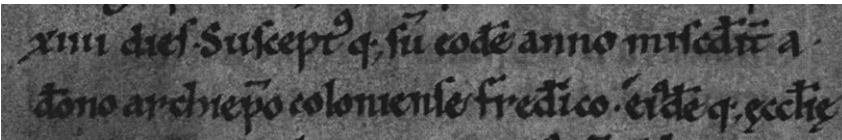 xiiii dieſ. Suſceptꝰ q; ſū eodē anno miſcd̄it̄ a
dōno archiep̄o colonienſe fred̄ico. eiꝰdē q; ęcclıę